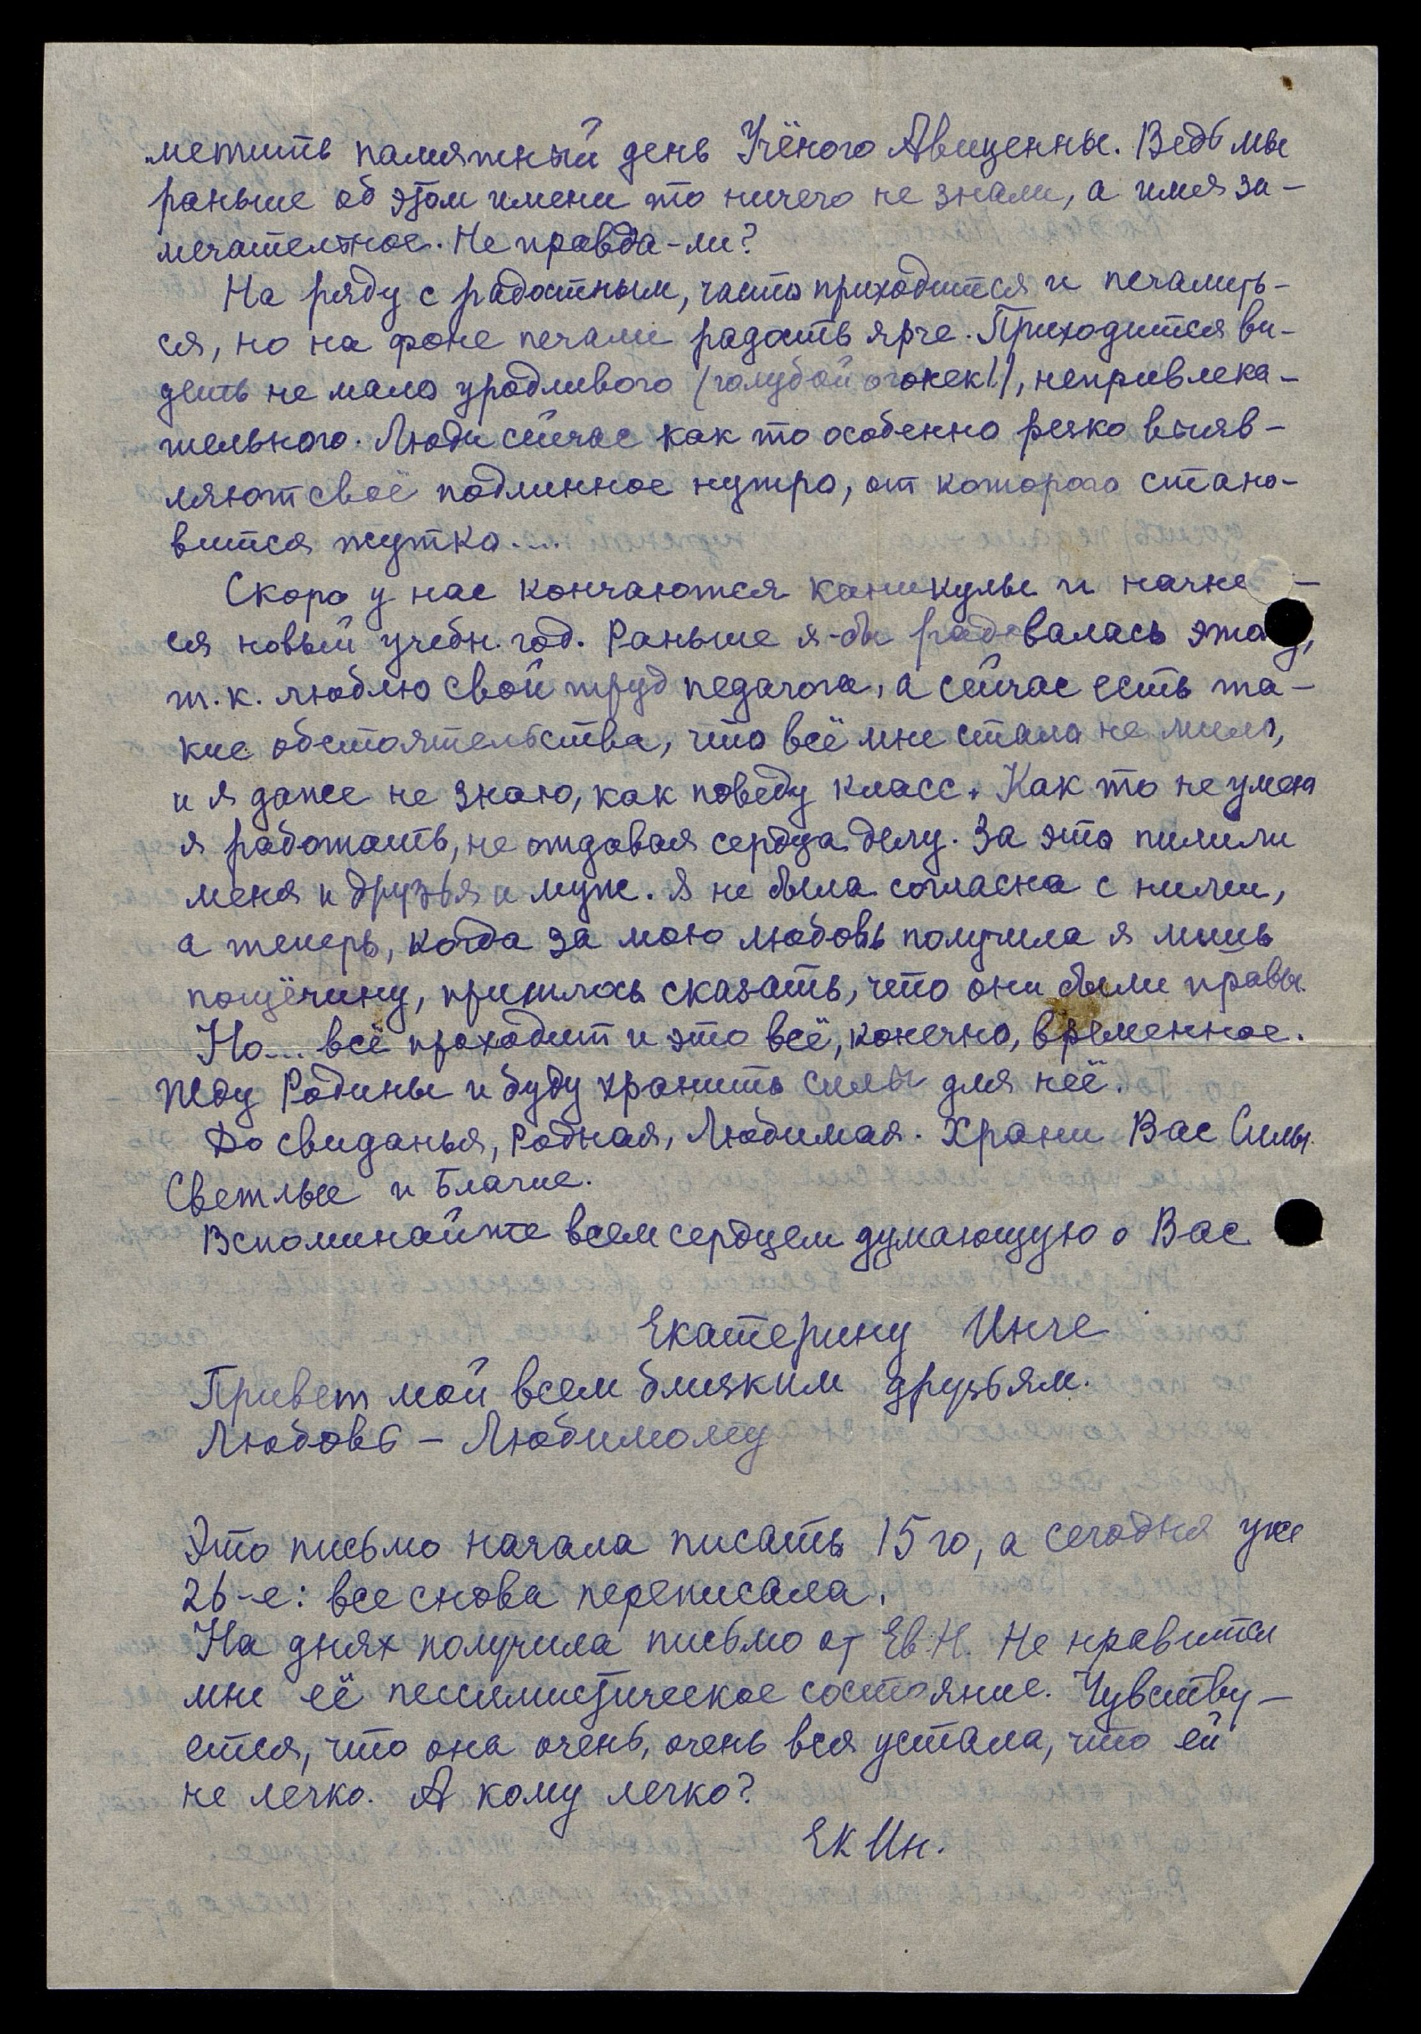 метить памятный день Учёного Авиценны. Ведь мы
раньше об этом имени то ничего не знали, а имя за-
мечательное. Не правда-ли?
На ряду с радостным, часто приходится и печалить-
ся, но на фоне печали радость ярче. Приходится ви-
деть не мало уродливого (голубой огонек!), непривлека-
тельного. Люди сейчас как то особенно резко выяв-
ляют своё подлинное нутро, от которого стано-
вится жутко....
Скоро у нас кончаются каникулы и начне -
ся новый учебн. год. Раньше я-бы радовалась этому,
т.к. люблю свой труд педагога, а сейчас есть та-
кие обстоятельства, что всё мне стало не мило,
и я даже не знаю, как поведу класс. Как то не умею
я работать, не отдавая сердца делу. За это пилили
меня и друзья и муж. Я не была согласна с ними,
а теперь, когда за мою любовь получила я лишь
пощёчину, пришлось сказать, что они были правы.
Но... всё проходит и это всё, конечно, временное.
Жду Родины и буду хранить силы для неё.
До свиданья, Родная, Любимая. Храни Вас Силы
Светлые и Благие.
Вспоминайте всем сердцем думающую о Вас
Екатерину Инге
Привет мой всем близким друзьям.
Любовь – Любимому
Это письмо начала писать 15 го, а сегодня уже
26-е: все снова переписала.
На днях получила письмо от Ев.Н. Не нравится
мне её пессимистическое состояние. Чувству-
ется, что она очень, очень вся устала, что ей
не легко. А кому легко?
Ек Ин.